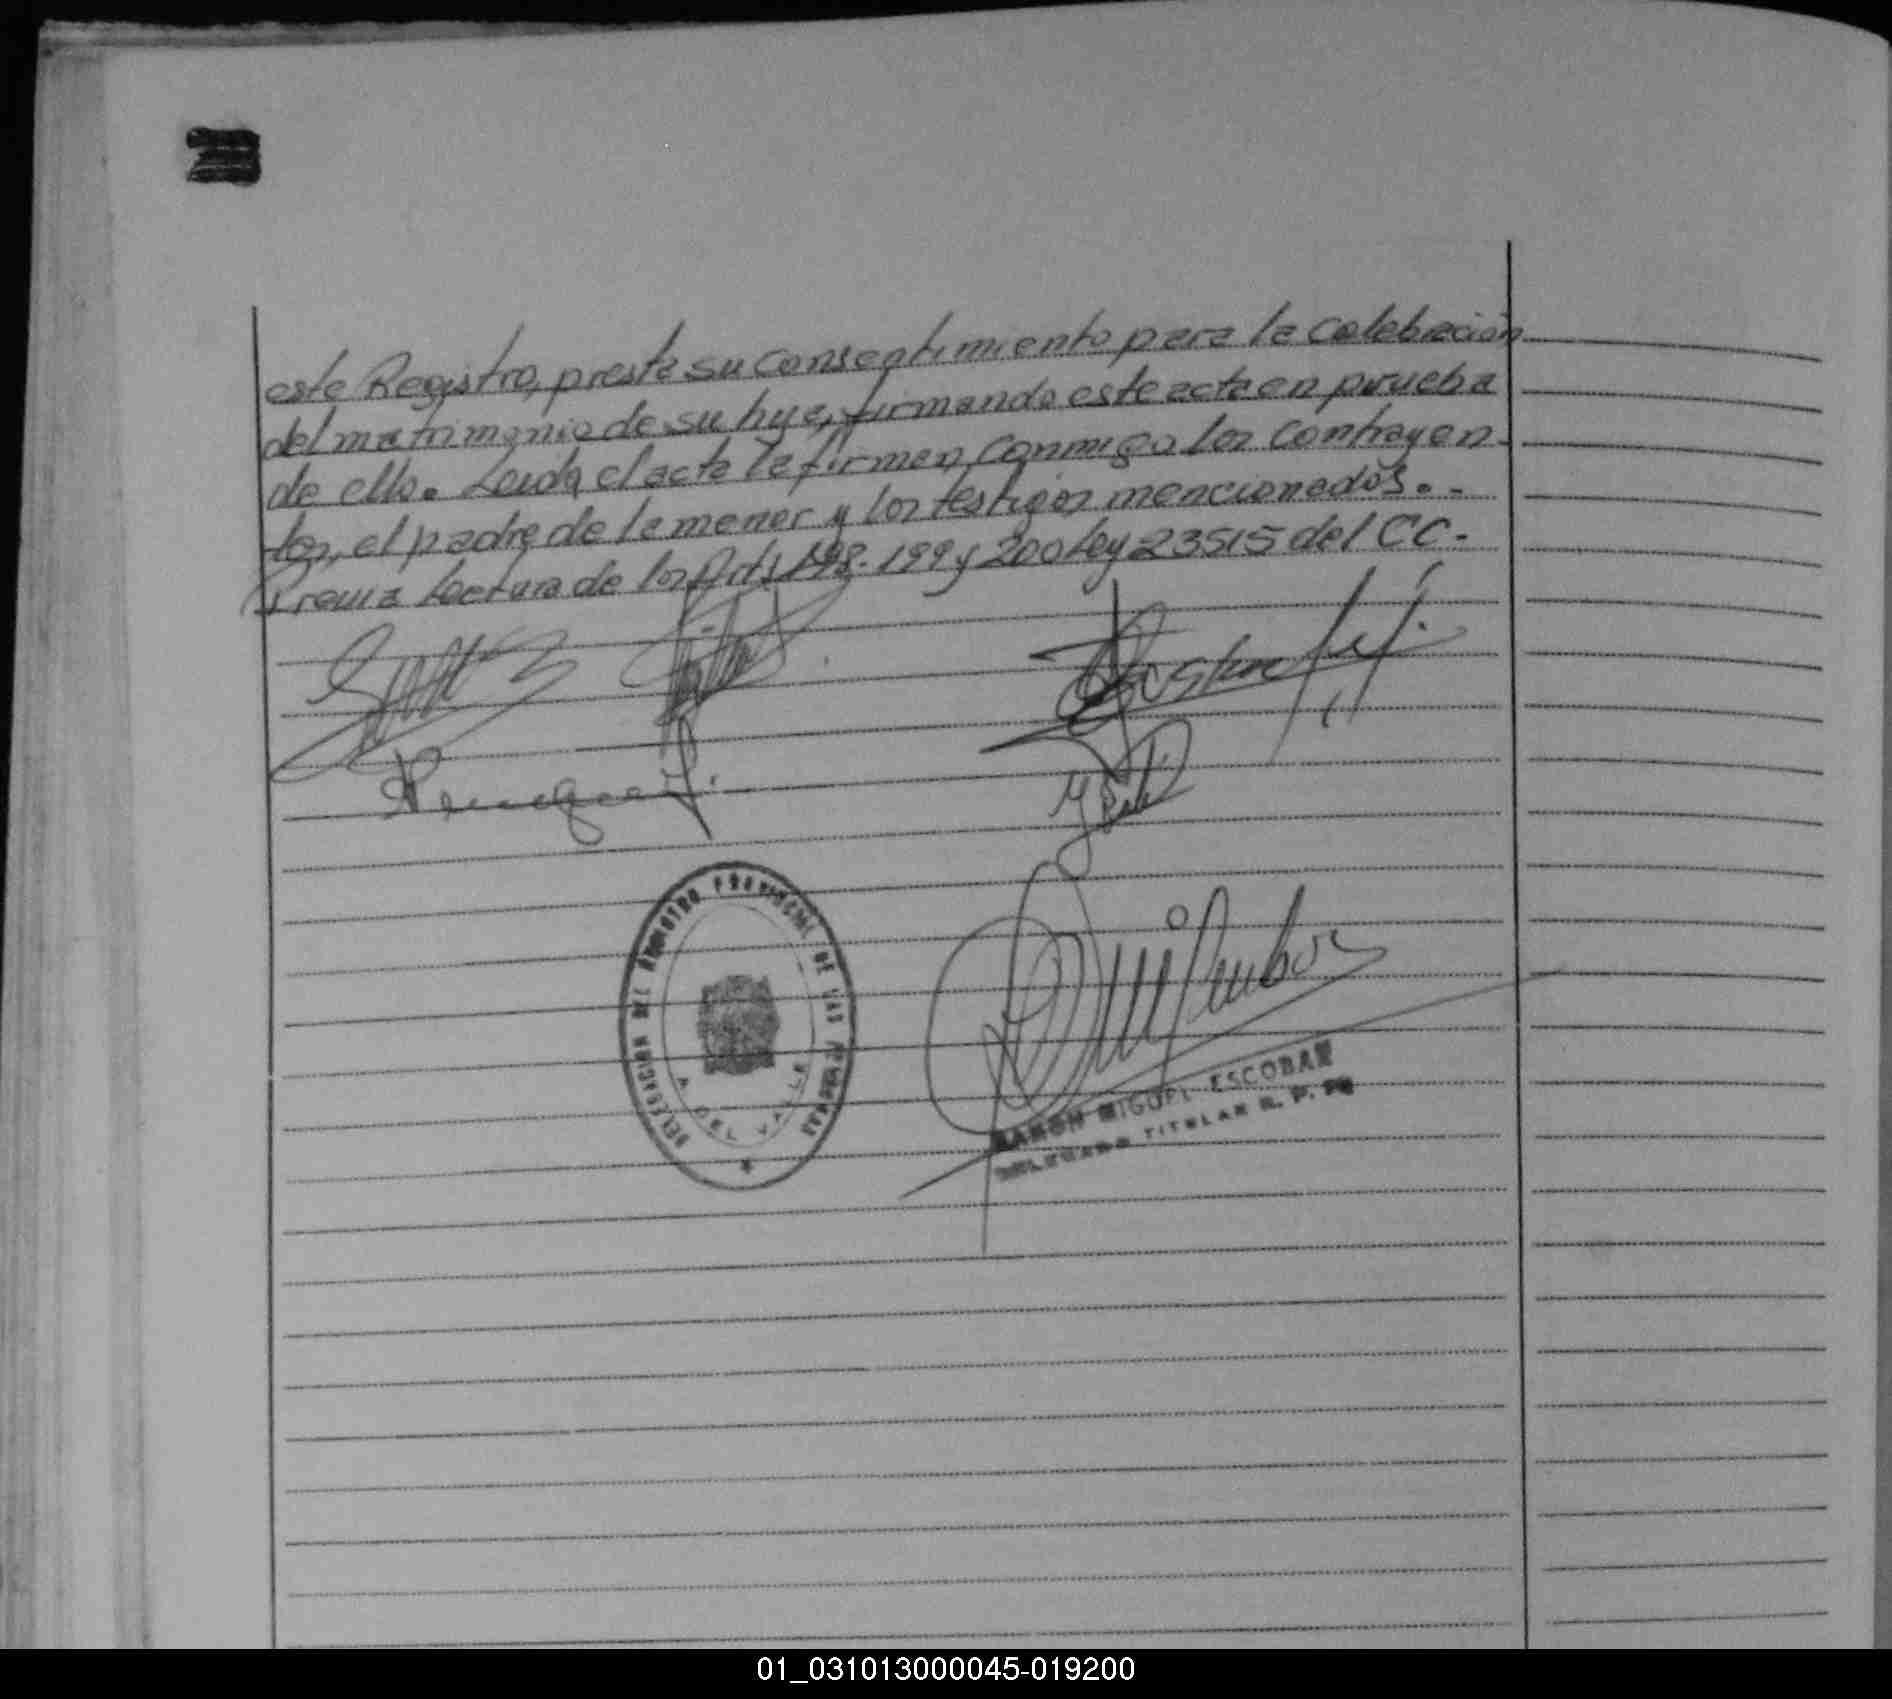 este Registro, presta su consentimiento para la celebración
del matrimonio de su hija, firmando este acta en prueba
de ello. Leida el acta la firman conmigo los contrayen-
tes, el padre de la menor y los testigos mencionados. -
Previa Lectura de los Arts 198-199 y 200 Ley 23515 del CC.-
DELEGACION DEL REGISTRO PROVINCIAL DE LAS PERSONAS
DEL VALLE
RAMON MIGUEL ESCOBAR
DELEGADO TITULAR R. P. PS
01_031013000045-019200